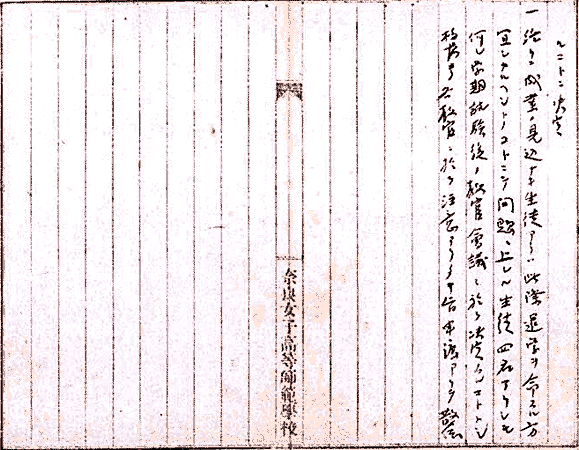 ルコトニ決定
一 絶ヘテ成業ノ見込ナキ生徒アラバ此際退学ヲ命スル方
宜シカルベシトノコトニテ問題ニ上レル生徒四名アリシモ
何レ学期試験後ノ教官会議ニ於テ決定スルコトトシ
校長ヨリ各教官ニ於テ注意アリタキ旨申渡アリテ散会
奈良女子高等師範學校